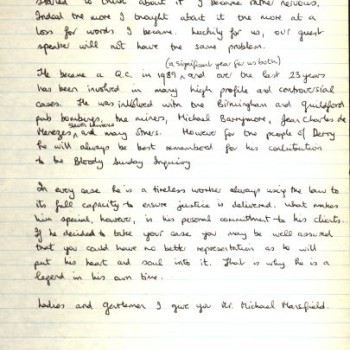 started to think about it I became rather nervous.
Indeed the more I thought about it the more at a
loss for words I became. Luckily for us, our guest
speaker will not have the same problem.
(a significant year for us both)
He became a Q.C. in 1989, and over the last 23 years
has been involved in many high profile and controversial
cases. He was involved with the Birmingham and Guildford
pub bombings, the miners, Michael Barrymore, Jean Charles de
Menezes, and many others. However for the people of Derry
he will always be best remembered for his contribution
to the Bloody Sunday Inquiry
In every case he is a tireless worker always using the law to
its full capacity to ensure justice is delivered. What makes
him special, however, is his personal commitment to his clients.
If he decided to take your case you may be well assured
that you could have no better representation as he will
put his heart and soul into it. That is why he is a
legend in his own time.
Ladies and Gentlemen I give you Mr. Michael Mansfield.